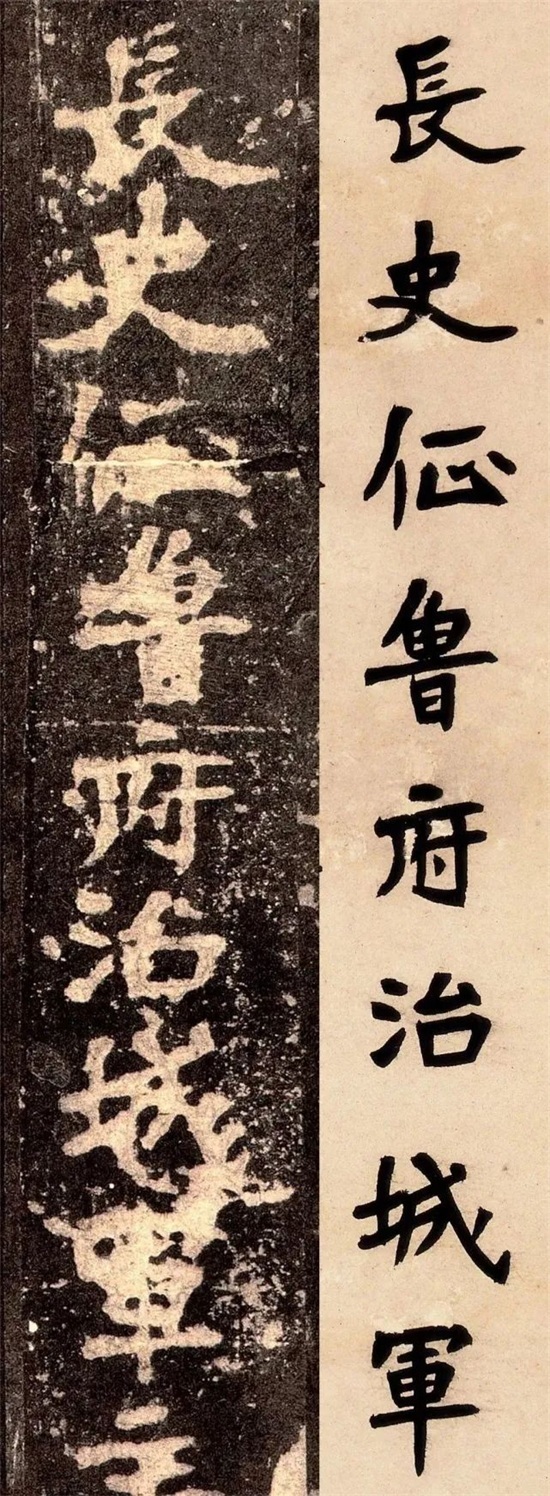 長史佂魯府治城軍
長史府治城軍